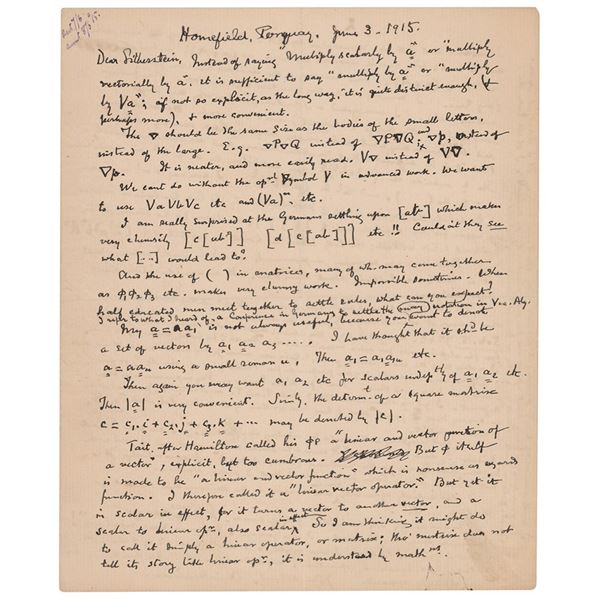 Homefield, Torquay, June 3. 1915.
Dear Silberstein, Instead of saying "Multiply scalarly by a" or "multiply
vectorially by a", it is sufficient to say "multiply by a" or "multiply
by Va"; if not so explicit, as the long way, it is quite distinct enough, (&
perhaps more), & more convenient.
The ∇ should be the same size as the bodies of the small letters,
instead of the large. E.g. ∇P∇Q instead of ∇P∇Q; and ∇p, instead of
∇p. It is neater, and more easily read. V∇ instead of V∇.
We cant do without the symbol V in advanced work. We want
to use VaVbVc etc and (Va)ⁿ, etc.
I am really surprised at the Germans settling upon [ab] which makes
very clumsily [c[ab]] [d[c[ab]]] etc!! Couldn't they see
what [..] would lead to?
And the use of ( ) in matrices, many of wh. may come together
as φ₁φ₂φ₃ etc. makes very clumsy work. Impossible sometimes. When
half educated men meet together to settle rules, what can you expect?
I refer to what I heard of a Conference in Germany to settle the notation in Vec. Alg.
My a = aa₁ is not always useful, because you want to denote
a set of vectors by a₁ a₂ a₃ .... I have thought that it shd be
a = aaₙ using a small roman u, Then a₁ = a₁a₁ₙ etc.
Then again you may want a₁ a₂ etc for scalars indepᵗˡʸ of a₁ a₂ etc.
Then |a| is very convenient. Simly. the determᵗ. of a square matrix
c = c₁.i + c₂.j + c₃.k + ... may be denoted by |c|.
Tait, after Hamilton called his φρ a "linear and vector function of
a vector", explicit, but too cumbrous. But φ itself
is made to be "a linear and vector function" which is nonsense as regards
function. I therefore called it a "linear vector operator". But yet it
is scalar in effect, for it turns a vector to another vector, and a
scalar to linear opʳ, also scalar in effect. So I am thinking it might do
to call it simply a linear operator, or matrix; tho' matrix does not
tell its story like linear opʳ, it is understood by mathⁿˢ.